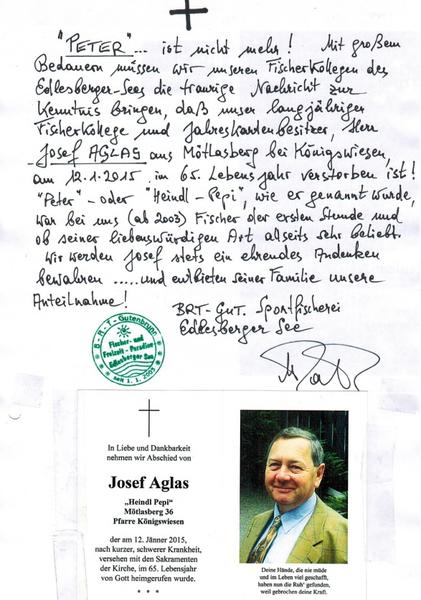 "PETER"... ist nicht mehr! Mit großem
Bedauern müssen wir unseren Fischerkollegen des
Edlesberger-Sees die traurige Nachricht zur
Kenntnis bringen, daß unser langjähriger
Fischerkollege und Jahreskartenbesitzer, Herr
Josef AGLAS aus Mötlasberg bei Königswiesen,
am 12.1.2015 im 65. Lebensjahr verstorben ist!
"Peter"- oder "Heindl-Pepi", wie er genannt wurde,
war bei uns (ab 2003) Fischer der ersten Stunde und
ob seiner liebenswürdigen Art allseits sehr beliebt.
Wir werden Josef stets ein ehrendes Andenken
bewahren .....und entbieten seiner Familie unsere
Anteilnahme!
BRT-GUT. Sportfischerei
Edlesberger See
B-R-T-Gutenbrunn
Fischer- und
Freizeit-Paradies
Edlesberger See
seit 1.1.2003
In Liebe und Dankbarkeit
nehmen wir Abschied von
Josef Aglas
„Heindl Pepi"
Mötlasberg 36
Pfarre Königswiesen
der am 12. Jänner 2015,
nach kurzer, schwerer Krankheit,
versehen mit den Sakramenten
der Kirche, im 65. Lebensjahr
von Gott heimgerufen wurde.
* * *
Deine Hände, die nie müde
und im Leben viel geschafft,
haben nun die Ruh' gefunden,
weil gebrochen deine Kraft.